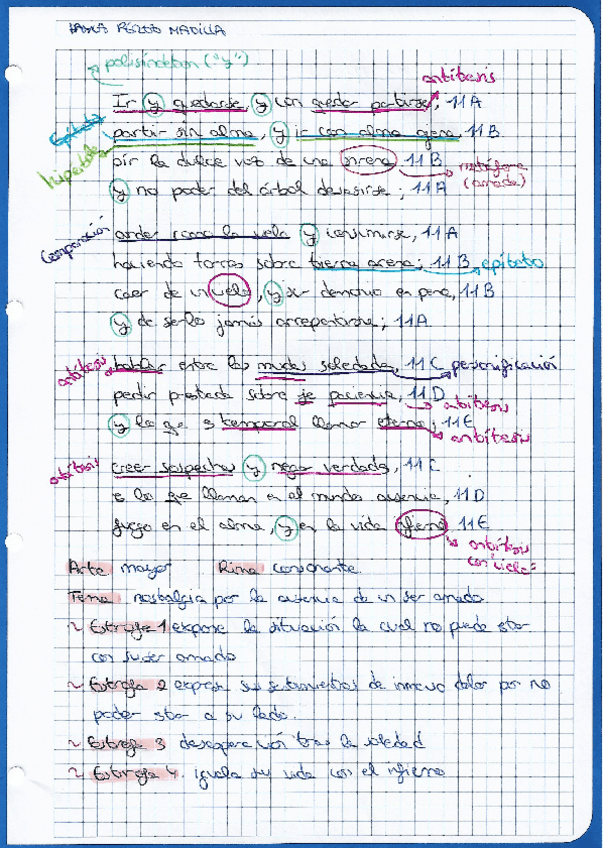 polisíndeton ("y")
antítesis
Ir y quedarse, y con quedar partirse, 11A
Epíteto
partir sin alma, y ir con alma ajena, 11B
hipérbole
oir la dulce voz de una sirena 11B
metáfora
(amada)
y no poder del árbol desasirse; 11A
Comparación
arder como la vela y consumirse, 11A
haciendo torres sobre tierna arena; 11B epíteto
caer de un cielo, y ser demonio en pena, 11B
y de serlo jamás arrepentirse; 11A
antítesis
hablar entre las mudas soledades, 11C personificación
pedir prestada sobre fe paciencia, 11D
antítesis
y lo que es temporal llamar eterno; 11E
antítesis
antítesis
creer sospechas y negar verdades, 11C
es lo que llaman en el mundo ausencia, 11D
fuego en el alma, y en la vida infierno 11E
antítesis
con "cielo"
Arte mayor Rima consonante
Tema nostalgia por la ausencia de un ser amado
~ Estrofa 1 expone la situación la cual no puede estar
con su ser amado
~ Estrofa 2 expresa sus de inmenso dolor por no
poder estar a su lado.
~ Estrofa 3 desesperación tras la soledad
~ Estrofa 4 iguala su vida con el infierno